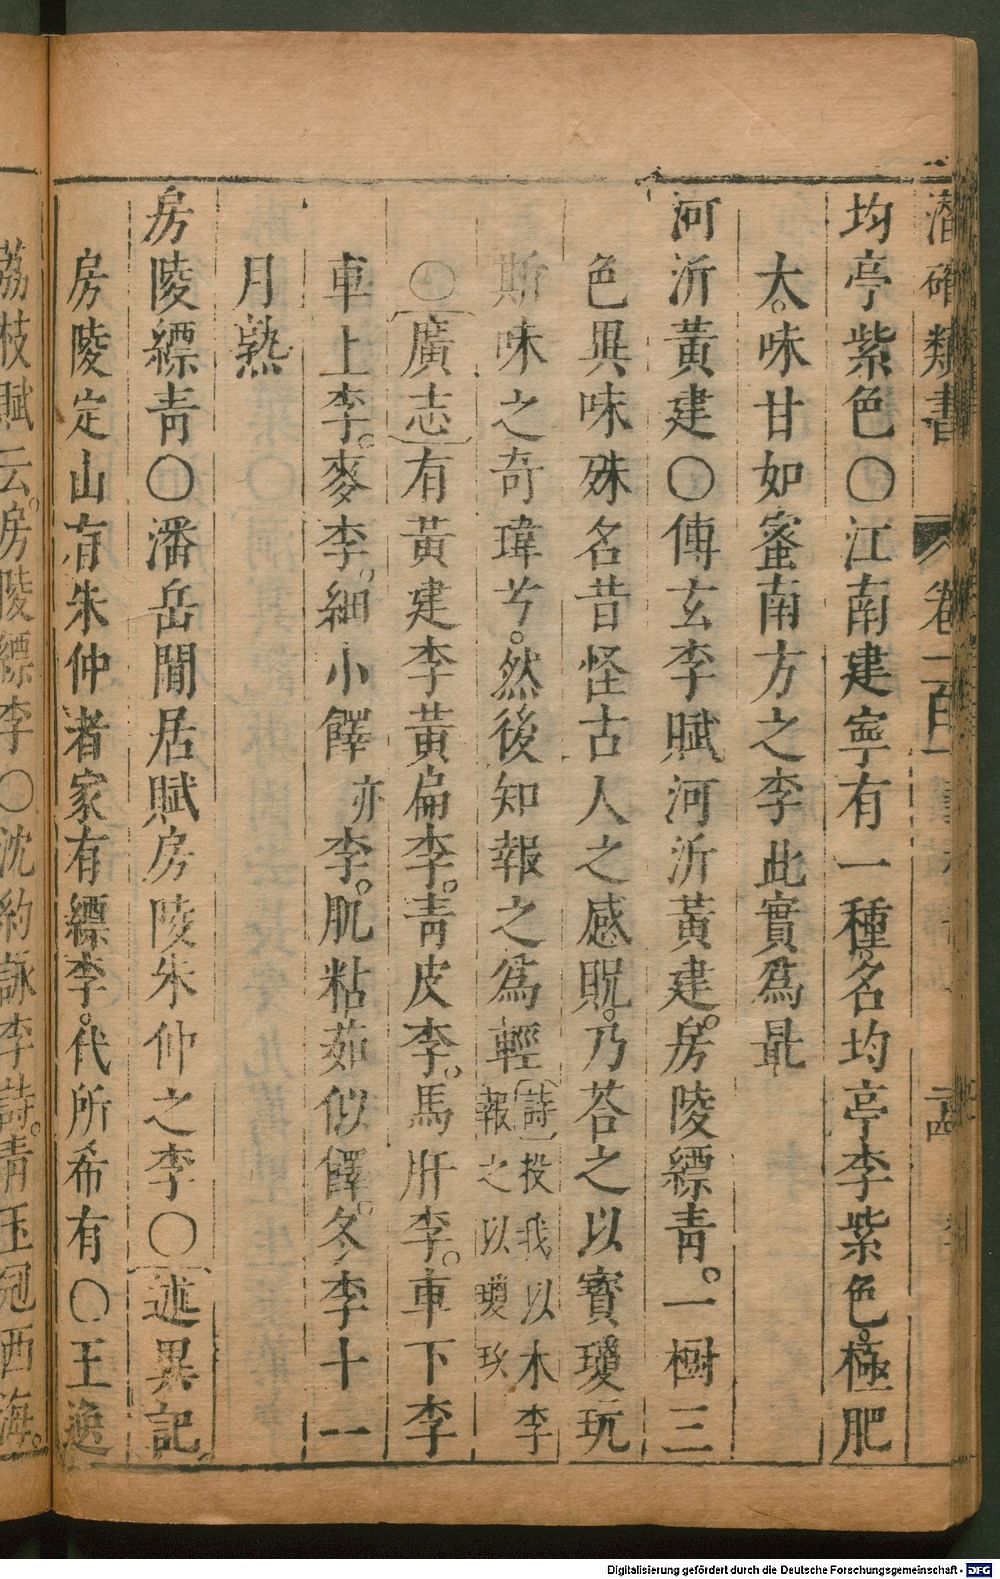 潛確類書 卷一百一 二四
均亭紫色〇江南建寧有一種名均亭李紫色極肥
大。味甘如蜜南方之李此實爲最
河沂黃建〇傅玄李賦河沂黃建。房陵縹青。一樹三
色異味殊名昔怪古人之感貺。乃荅之以寶瓊玩
斯味之奇瑋兮。然後知報之爲輕詩投我以木李
報之以瓊玖
〇廣志有黃建李黃扁李。青皮李。馬肝李。車下李
車上李。麥李。細小餫亦李。肌粘茹似餫。冬李十一
月熟
房陵縹青〇潘岳閒居賦房陵朱仲之李〇述異記
房陵定山有朱仲者家有縹李。代所希有〇王逸
荔枝賦云。房陵縹李〇沈約詠李詩。青玉冠西海。
Digitalisierung gefördert durch die Deutsche Forschungsgemeinschaft - DFG